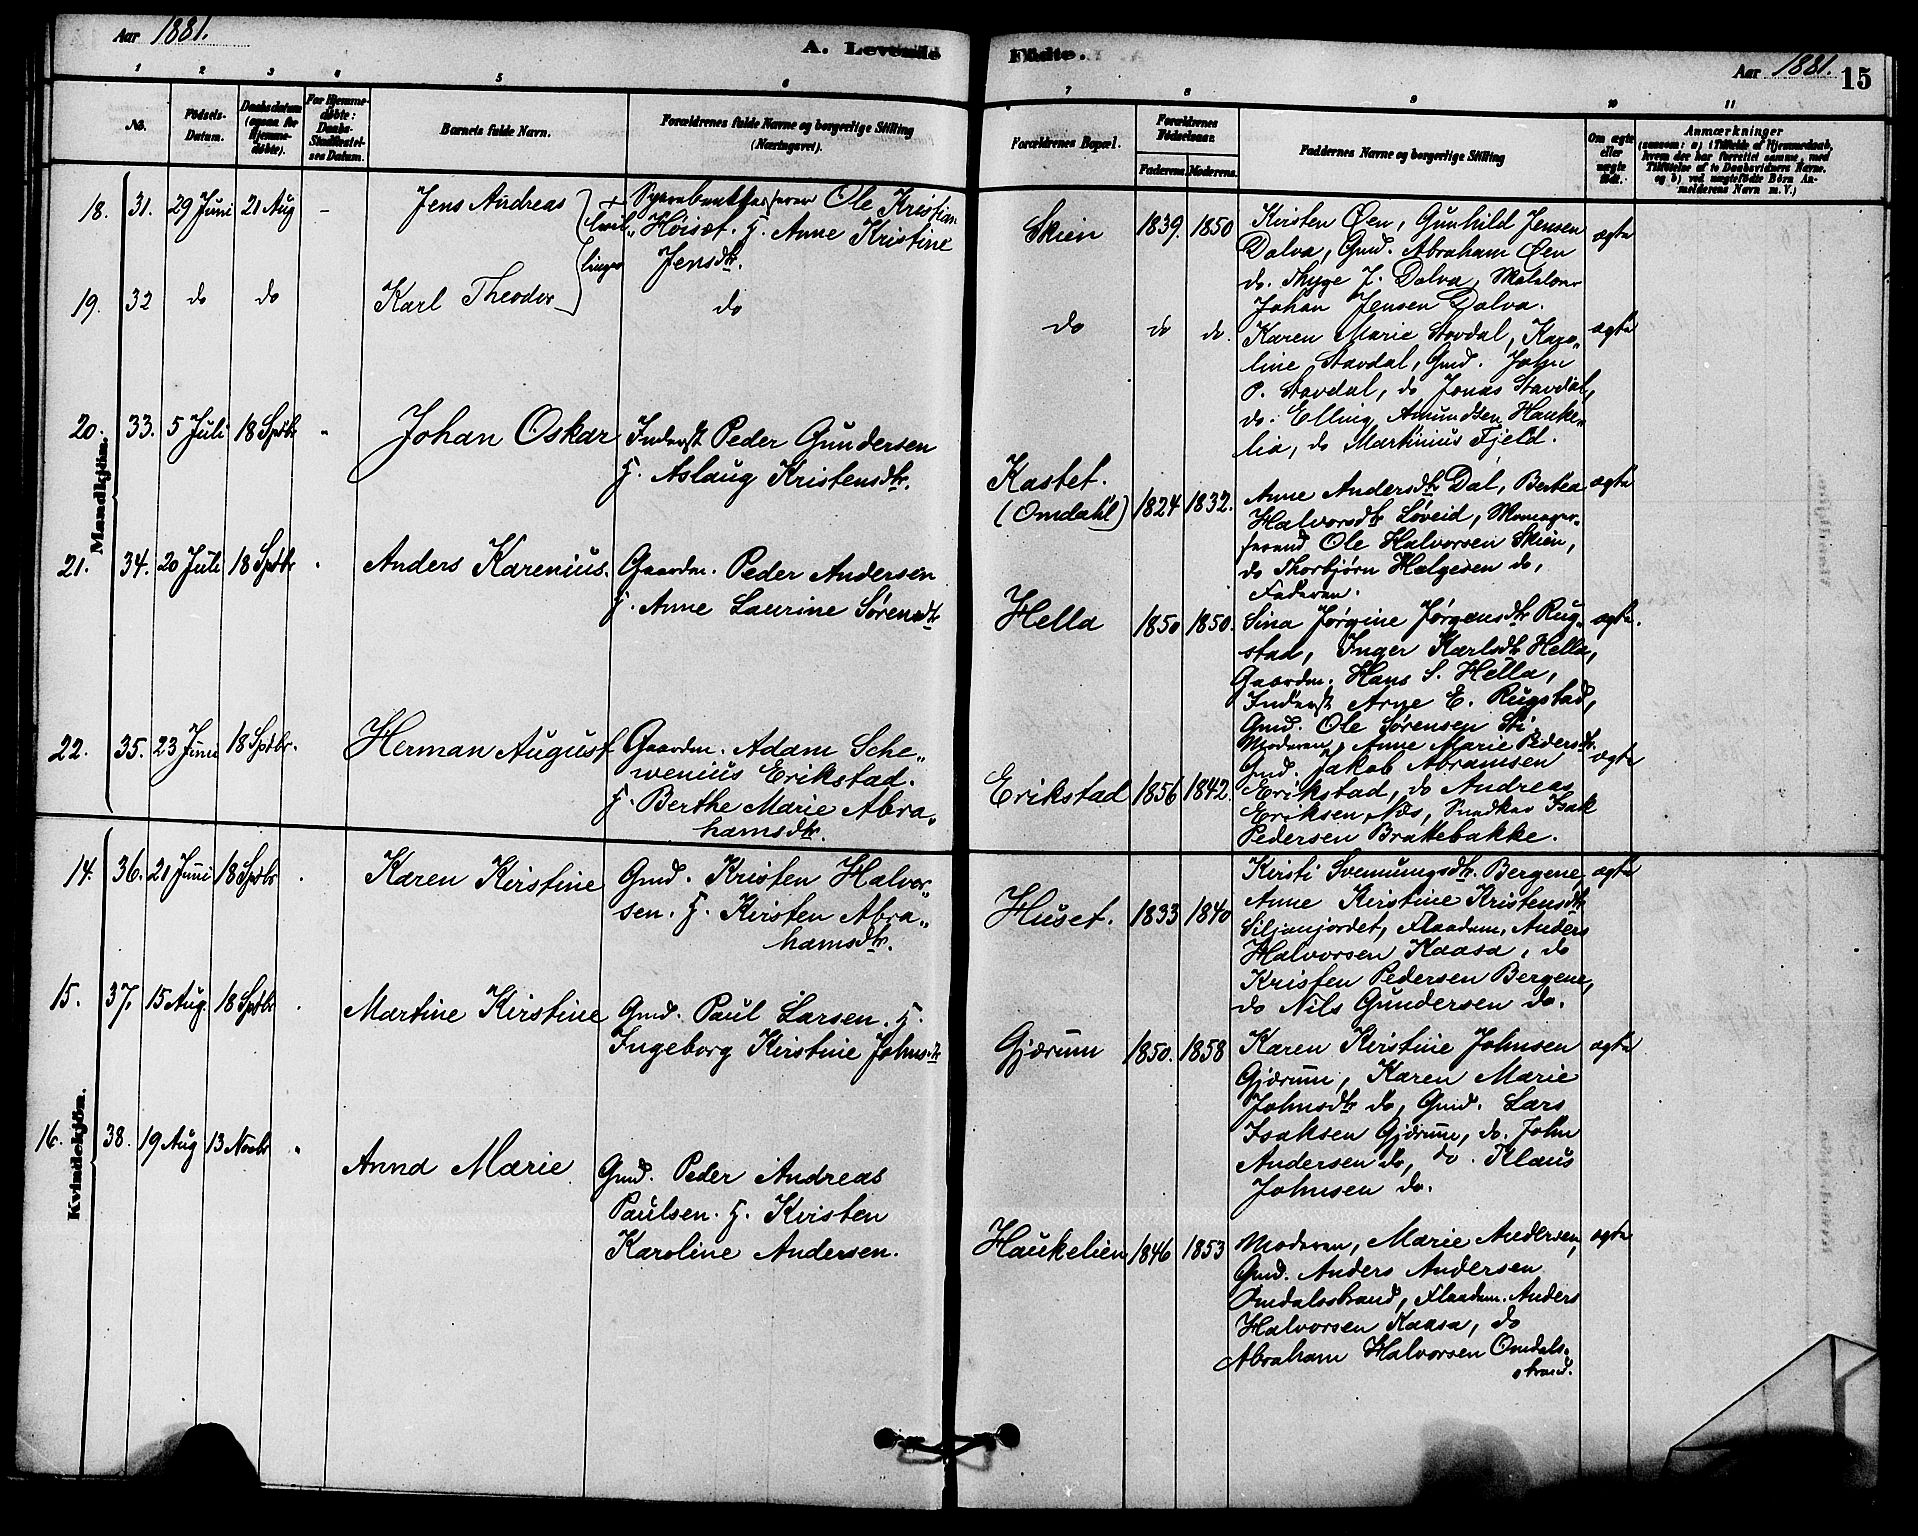 Aar 1881.
A. Levende Födte.
Aar 1881. 15
1 2 3 4 5 6 7 8 9 10 11
No.
Födsels-Datum.
Daabsdatum (ogsaa for Hjemme-døbte).
For Hjemme-døbte: Daabs-Stadfæstel-ses Datum.
Barnets fulde Navn.
Forældrenes fulde Navne og borgerlige Stilling (Næringsvei).
Forældrenes Bopæl.
Forældrenes Födselsaar.
Faderens. Moderens.
Faddernes Navne og borgerlige Stilling
Om ægte eller uægte født.
Anmærkninger
(saasom: a) i Tilfælde af Hjemmedaab, hvem der har forrettet samme, med Tilføielse af to Daabsvidners Navne, og b) ved uægtefödte Börn An-melderens Navn m. V.)
Mandkjön.
18. 31. 29 Juni 21 Aug – Jens Andreas
Ole Kristian
Höiset. H. Anne Kristine
Jensdtr.
Skien 1839. 1850
Kirsten Øen, Gunhild Jensen
Dalva, Gmd. Abraham Øen
do. Thyge J. Dalva,
Johan Jensen Dalva.
ægte
19. 32 do do Karl Theodor
do
do do do.
Karen Marie Stavdal, Karo„
line Stavdal, Gmd. John
P. Stavdal, do Jonas Stavdal,
do. Elling Amundsen Hauke„
lia, do Martinius Fjeld.
ægte
20. 33. 5 Juli 18 Septbr „ Johan Oskar
Inderst Peder Gundersen
H. Aslaug Kristensdtr.
Kastet.
(Omdahl) 1824 1832.
Anne Andersdtr Dal, Bertea
Halvorsdtr Løveid,
Ole Halvorsen Skien,
do Thorbjørn Helgesen do,
Faderen.
ægte
21. 34. 20 Juli 18 Septbr „ Anders Karenius.
Gaardm. Peder Andersen
H. Anne Laurine Sørensdtr
Hella 1850 1850.
Sina Jørgine Jørgensdtr Rug„
stad, Inger Karlsdtr Hella,
Gaardm. Hans S. Hella,
Inderst Arne E. Rugstad,
Gmd. Ole Sørensen Sti
ægte.
22. 35. 23 Juni 18 Septbr. Herman August
Gaardm. Adam Sche„
wenius Erikstad.
H. Berthe Marie Abra„
hamsdtr.
Erikstad 1856 1842.
Moderen, Anne Marie Pedersdtr.
Gmd. Jakob Abramsen
Erikstad, do Andreas
Eriksen Næs, Snedker Isak
Pedersen Brattebakke.
ægte
Kvindekjön.
14. 36. 20 Juni 18 Septbr „ Karen Kirstine
Gmd. Kristen Halvor„
sen. H. Kirsten Abra„
hamsdtr.
Huset. 1833 1840
Kirsti Svennungsdtr. Bergene,
Anne Kirstine Kristensdtr
Siljanjordet, Flaadm. Anders
Halvorsen Kaasa, do
Kristen Pedersen Bergene,
do Nils Gundersen do.
ægte
15. 37. 15 Aug. 18 Septbr „ Martine Kirstine
Gmd. Paul Larsen. H.
Ingeborg Kirstine Johnsdtr
Gjærum 1850. 1858
Karen Kirstine Johnsen
Gjærum, Karen Marie
Johnsdtr do, Gmd. Lars
Isaksen Gjærum, do. John
Andersen do, do. Klaus
Johnsen do.
ægte
16. 38. 19 Aug 13 Novbr „ Anna Marie
Gmd. Peder Andreas
Paulsen. H. Kirsten
Karoline Andersen.
Haukelien 1846 1853
Moderen, Marie Andersen,
Gmd. Anders Andersen
Omdalsstrand, Flaadm. Anders
Halvorsen Kaasa, do
Abraham Halvorsen Omdals„
strand.
ægte